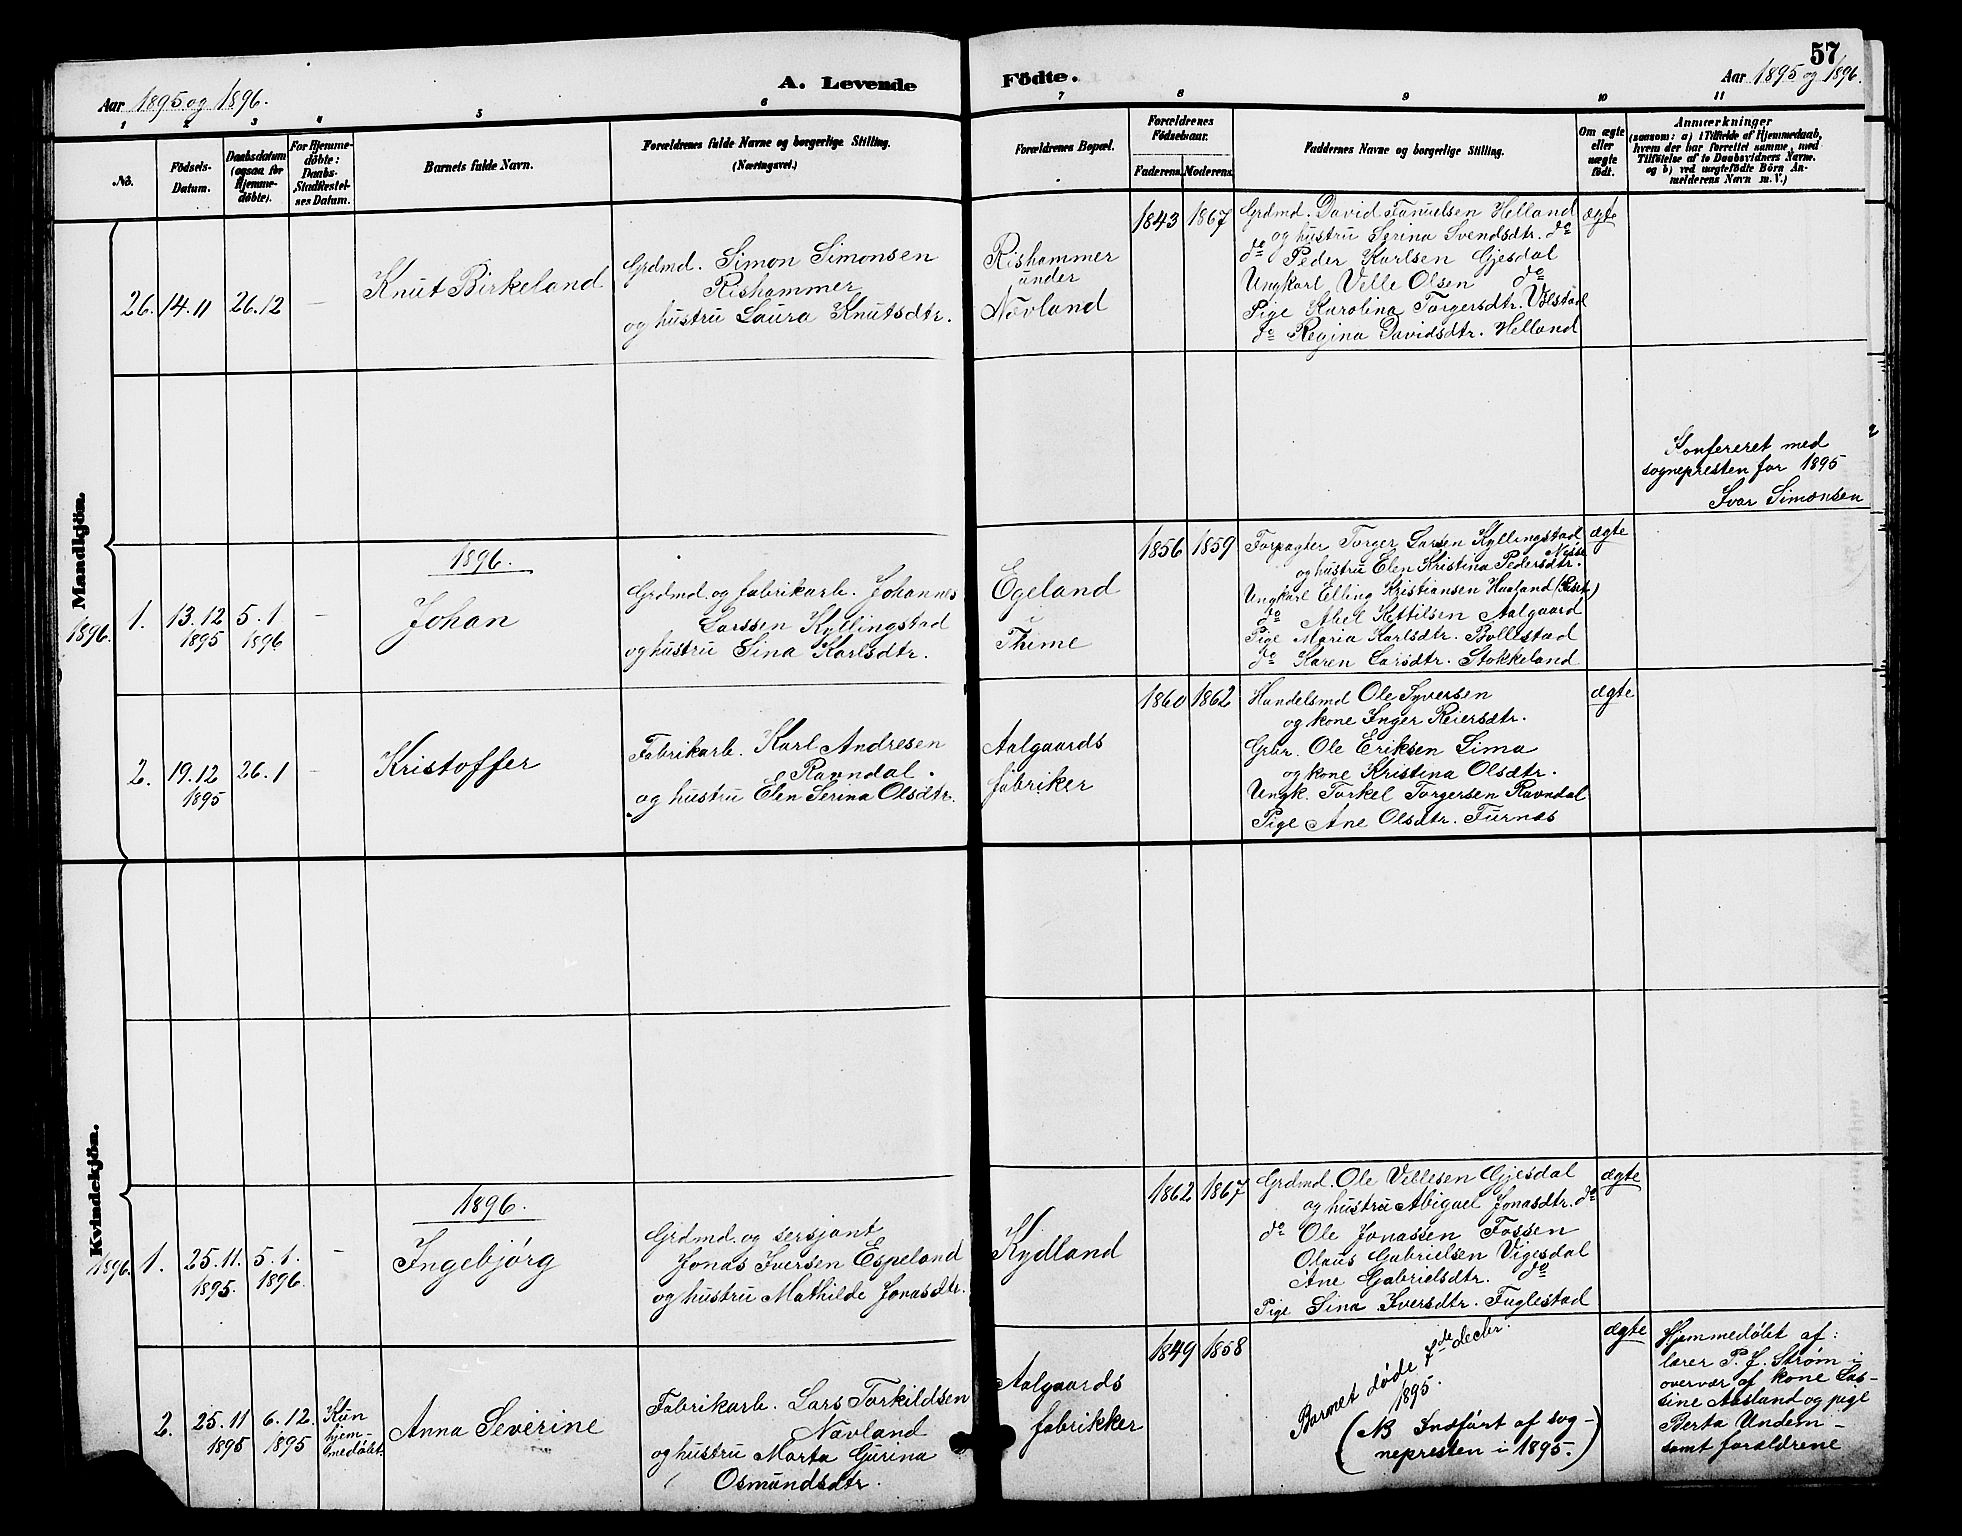 57
Aar 1895 og 1896.
A. Levende
Födte.
Aar 1895 og 1896.
1 2 3 4 5 6 7 8 9 10 11
No.
Födsels-
Datum.
Daabsdatum
(ogsaa for
Hjemme-
døbte).
For Hjemme-
døbte:
Daabs-
Stadfæstel-
ses Datum.
Barnets fulde Navn.
Forældrenes fulde Navne og borgerlige Stilling.
(Næringsvei.)
Forældrenes Bopæl.
Forældrenes
Födselsaar.
Faderens. Moderens.
Faddernes Navne og borgerlige Stilling.
Om ægte
eller
uægte
født.
Anmærkninger
(saasom: a) i Tilfælde af Hjemmedaab,
hvem der har forrettet samme, med
Tilföielse af to Daabsvidners Navne.
og b) ved uægtefödte Börn An-
melderens Navn m.V.)
Mandkjön.
26. 14.11 26.12 –
Knut Birkeland
Grdmd. Simon Simonsen
Rishammer
og hustru Laura Knutsdtr.
Rishammer
under
Nævland
1843 1867
Grdmd. David Tanuelsen Helland
og hustru Serina Svendsdtr. do
do Peder Karlsen Gjesdal
Ungkarl Velle Olsen do
Pige Karolina Torgersdtr. Ølstad
do Regina Davidsdtr. Helland
ægte
Konfereret med
sognepresten for 1895
Ivar Simonsen
1896.
1896.
1. 13.12 5.1 –
1895 1896
Johan
Grdmd. og fabrikarb. Johannes
Larssen Kyllingstad
og hustru Sina Karlsdtr.
Egeland
i
Thime
1856 1859
Forpagter Torger Larsen Kyllingstad
Nesse
og hustru Elen Kristina Pedersdtr.
Ungkarl Elling Kristiansen Haaland
do Abel Kettilsen Aalgaard
Pige Maria Karlsdtr. Bollestad
do Karen Larsdtr. Stokkeland
ægte
2. 19.12 26.1 –
1895
Kristoffer
Fabrikarb. Karl Andresen
Ravndal.
og hustru Elen Serina Olsdtr.
Aalgaards
fabriker
1860 1862
Handelsmd Ole Syversen
og kone Inger Reiersdtr.
Grbr. Ole Eriksen Lima
og kone Kristina Olsdtr.
Ungk. Torkel Torgersen Ravndal
Pige Ane Olsdtr. Furnæs
ægte
Kvindekjön.
1896.
1896.
1. 25.11. 5.1. –
1895. 1896.
Ingebjørg
Grdmd. og sersjant
Jonas Iversen Espeland
og hustru Mathilde Jonasdtr.
Kydland
1862 1867
Grdmd. Ole Vellesen Gjesdal
og hustru Abigael Jonasdtr. do
do Ole Jonassen Fossen
Olaus Gabrielsen Vigesdal
Ane Gabrielsdtr. do
Pige Sina Iversdtr. Fuglestad
ægte
2. 25.11 6.12.
1895 1895
Kun
hjem-
medøbt.
Anna Severine
Fabrikarb. Lars Torkildsen
Nævland
og hustru Marta Gurina
Osmundsdtr.
Aalgaards
fabrikker
1849 1858
Barnet døde 7de decbr.
1895.
(NB Indført af sog-
nepresten i 1895.)
ægte
Hjemmedøbt af:
lærer P. J. Strøm i
overvær af kone Las-
sine Aasland og pige
Berta Undem –
samt forældrene